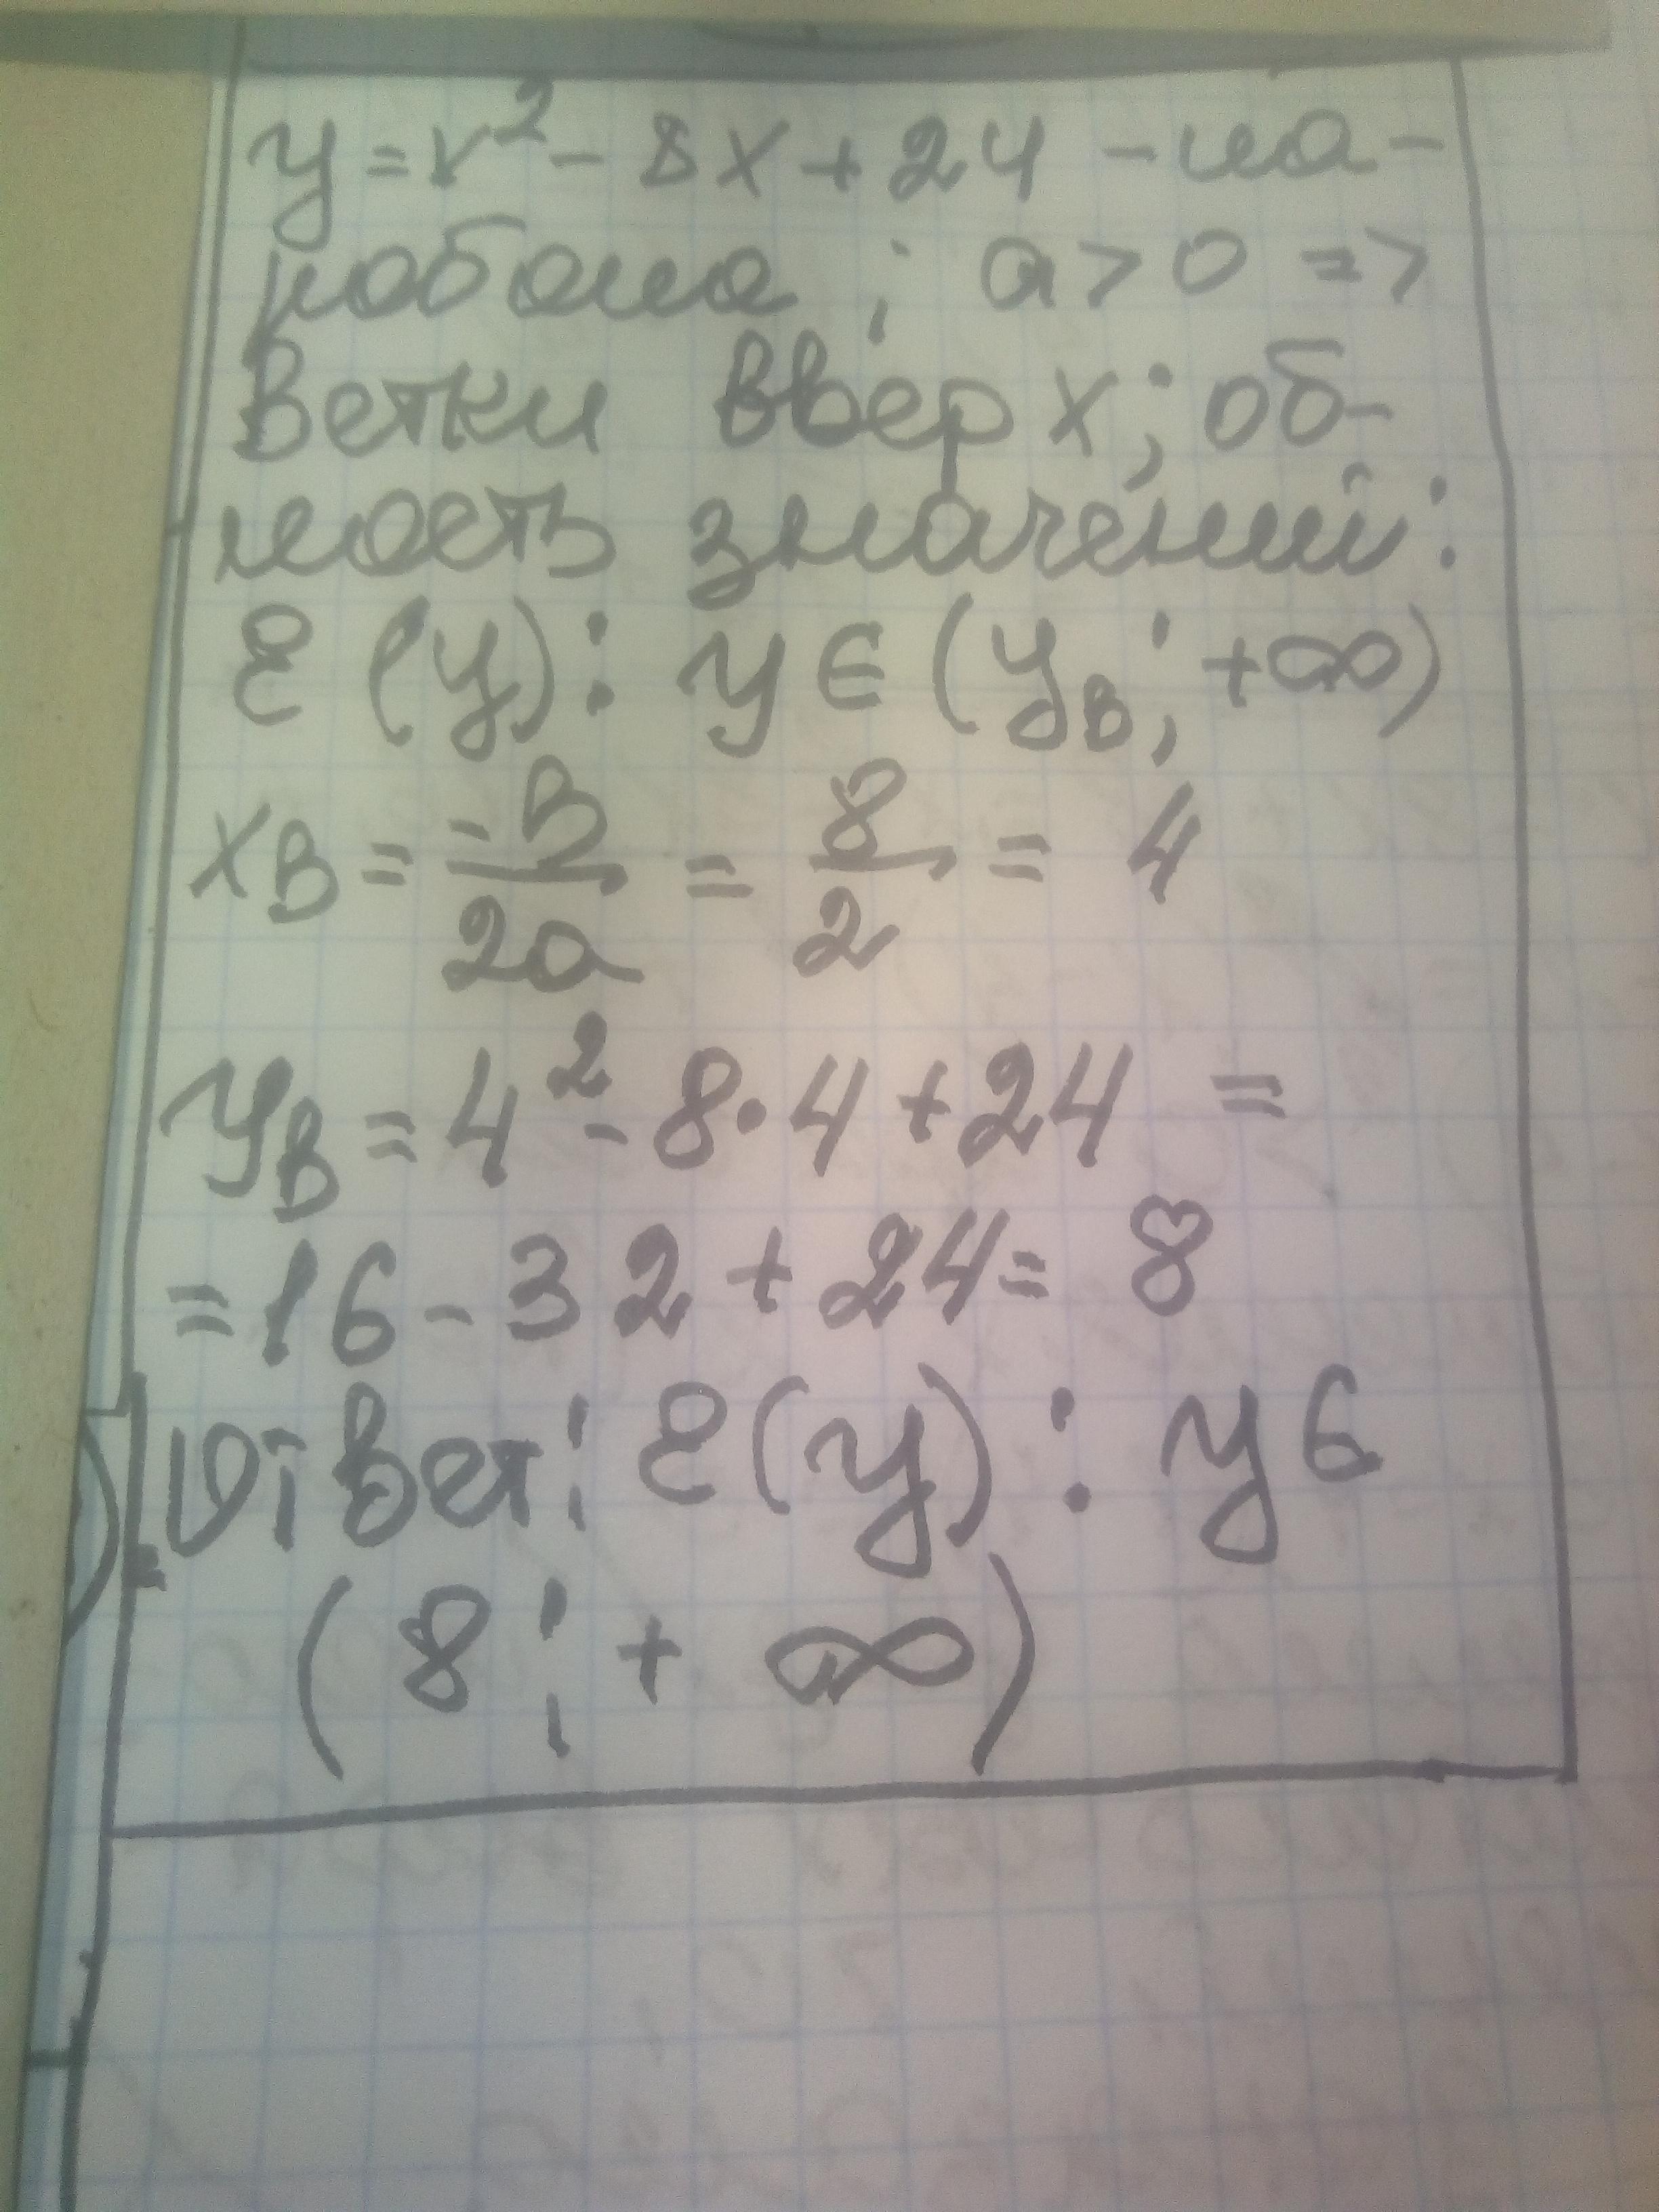 y = x² - 8x + 24 - па-
рабола ; a > 0 =>
Ветки вверх; об-
ласть значений:
E (y): y ∈ (yв; +∞)
xв = -в/2a = 8/2 = 4
yв = 4² - 8·4 + 24 =
= 16 - 32 + 24 = 8
Ответ: E(y): y ∈
(8; + ∞)